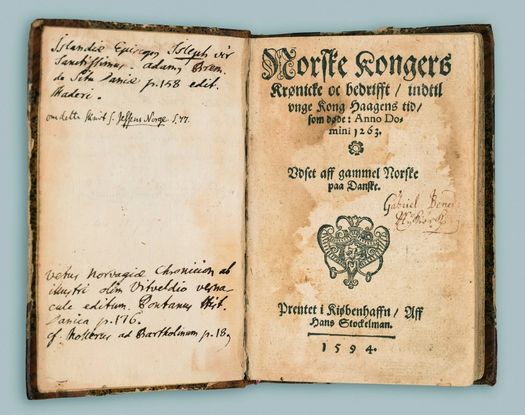 Islandiæ Episcopus Isleph vir
Sanctissimus. Adam, Brem.
de Situ Daniæ p.158 edit.
Maderi.
om dette skrift s. Jessens Norge S.
Vetus Norvagiæ Chronicon ab
illustri olim Vitveldio verna-
cule editum. Pontanus Hist.
Danica p.176.
cf. Mollerus ad Bartholinum p.18
Norſke Kongers
Krønicke oc bedrifft / indtil
vnge Kong Haagens tid /
ſom døde: Anno Do-
mini 1263.
Vdſet aff gammel Norſke
paa Danſke.
Gabriel
Prentet i Kiøbenhaffn / Aff
Hans Stockelman.
1 5 9 4.